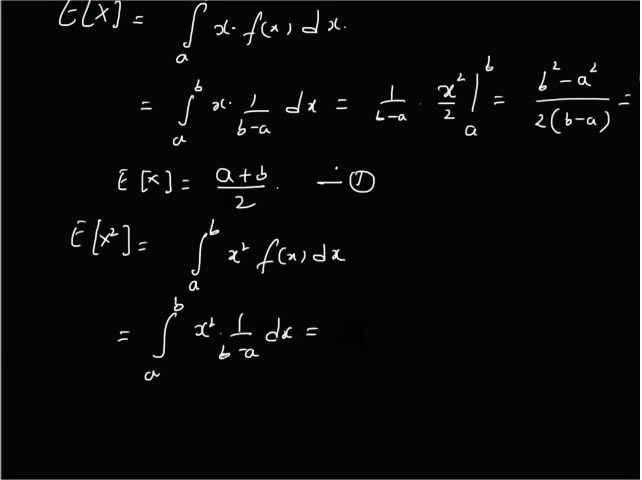 E[X] = ∫_a x·f(x) dx.
= ∫_a^b x·1/(b-a) dx = 1/(b-a) · x²/2 |_a^b = (b²-a²)/(2(b-a)) =
E[x] = (a+b)/2. — ①
E[x²] = ∫_a^b x² f(x) dx
= ∫_a^b x²·1/(b-a) dx =